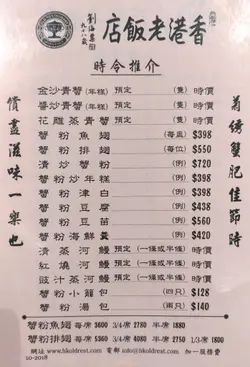 香港老飯店
時令推介
菊綉蟹肥佳節時
償盡滋味一樂也
金沙青蟹 (年糕) 預定 (隻) 時價
醬炒青蟹 (年糕) 預定 (隻) 時價
花雕蒸青蟹 預定 (隻) 時價
蟹粉魚翅 (每盅) $398
蟹粉排翅 (每位) $550
清炒蟹粉 (例) $720
蟹粉炒年糕 (例) $398
蟹粉津白 (例) $420
蟹粉豆腐 (例) $438
蟹粉豆苗 (例) $560
蟹粉海鮮羹 (例) $420
清蒸河鰻 預定 (一條或半條) 時價
紅燒河鰻 預定 (一條或半條) 時價
豉汁蒸河鰻 預定 (一條或半條) 時價
蟹粉小籠包 (四只) $128
蟹粉湯包 (兩只) $140
蟹粉魚翅 每席 3600 3/4席 2780 半席 1880
蟹粉排翅 每席 5000 3/4席 4030 半席 2750 1/3席 1800
網址 www.hkoldrest.com 電郵 info@hkoldrest.com 加一服務費
10-2018